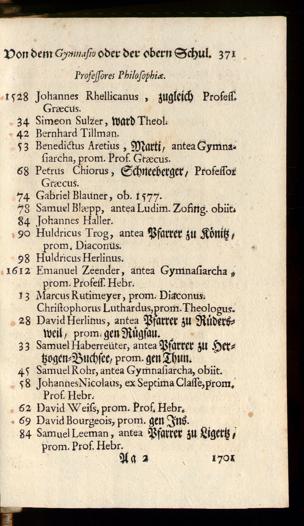 Von dem Gymnasio oder der obern Schul. 371
Professores Philosophiæ.
1528 Johannes Rhellicanus , zugleich Profess.
Græcus.
34 Simeon Sulzer, ward Theol.
42 Bernhard Tillman.
53 Benedictus Aretius , Marti, antea Gymna-
siarcha, prom. Prof. Græcus.
68 Petrus Chiorus , Schneeberger, Professor
Græcus.
74 Gabriel Blauner, ob. 1577.
78 Samuel Blæpp, antea Ludim. Zofing. obiit.
84 Johannes Haller.
90 Huldricus Trog, antea Pfarrer zu Könitz,
prom. Diaconus.
98 Huldricus Herlinus.
1612 Emanuel Zeender, antea Gymnasiarcha ,
prom. Profess. Hebr.
13 Marcus Rutimeyer, prom. Diaconus.
Christophorus Luthardus, prom. Theologus.
28 David Herlinus, antea Pfarrer zu Rüders-
weil, prom. gen Rügsau.
33 Samuel Haberreüter, antea Pfarrer zu Her-
tzogen-Buchsee, prom. gen Thun.
45 Samuel Rohr, antea Gymnasiarcha, obiit.
58 Johannes Nicolaus, ex Septima Classe, prom.
Prof. Hebr.
62 David Weiss, prom. Prof. Hebr.
69 David Bourgeois, prom. gen Ins.
84 Samuel Leeman, antea Pfarrer zu Ligertz,
prom. Prof. Hebr.
Aa 2 1701